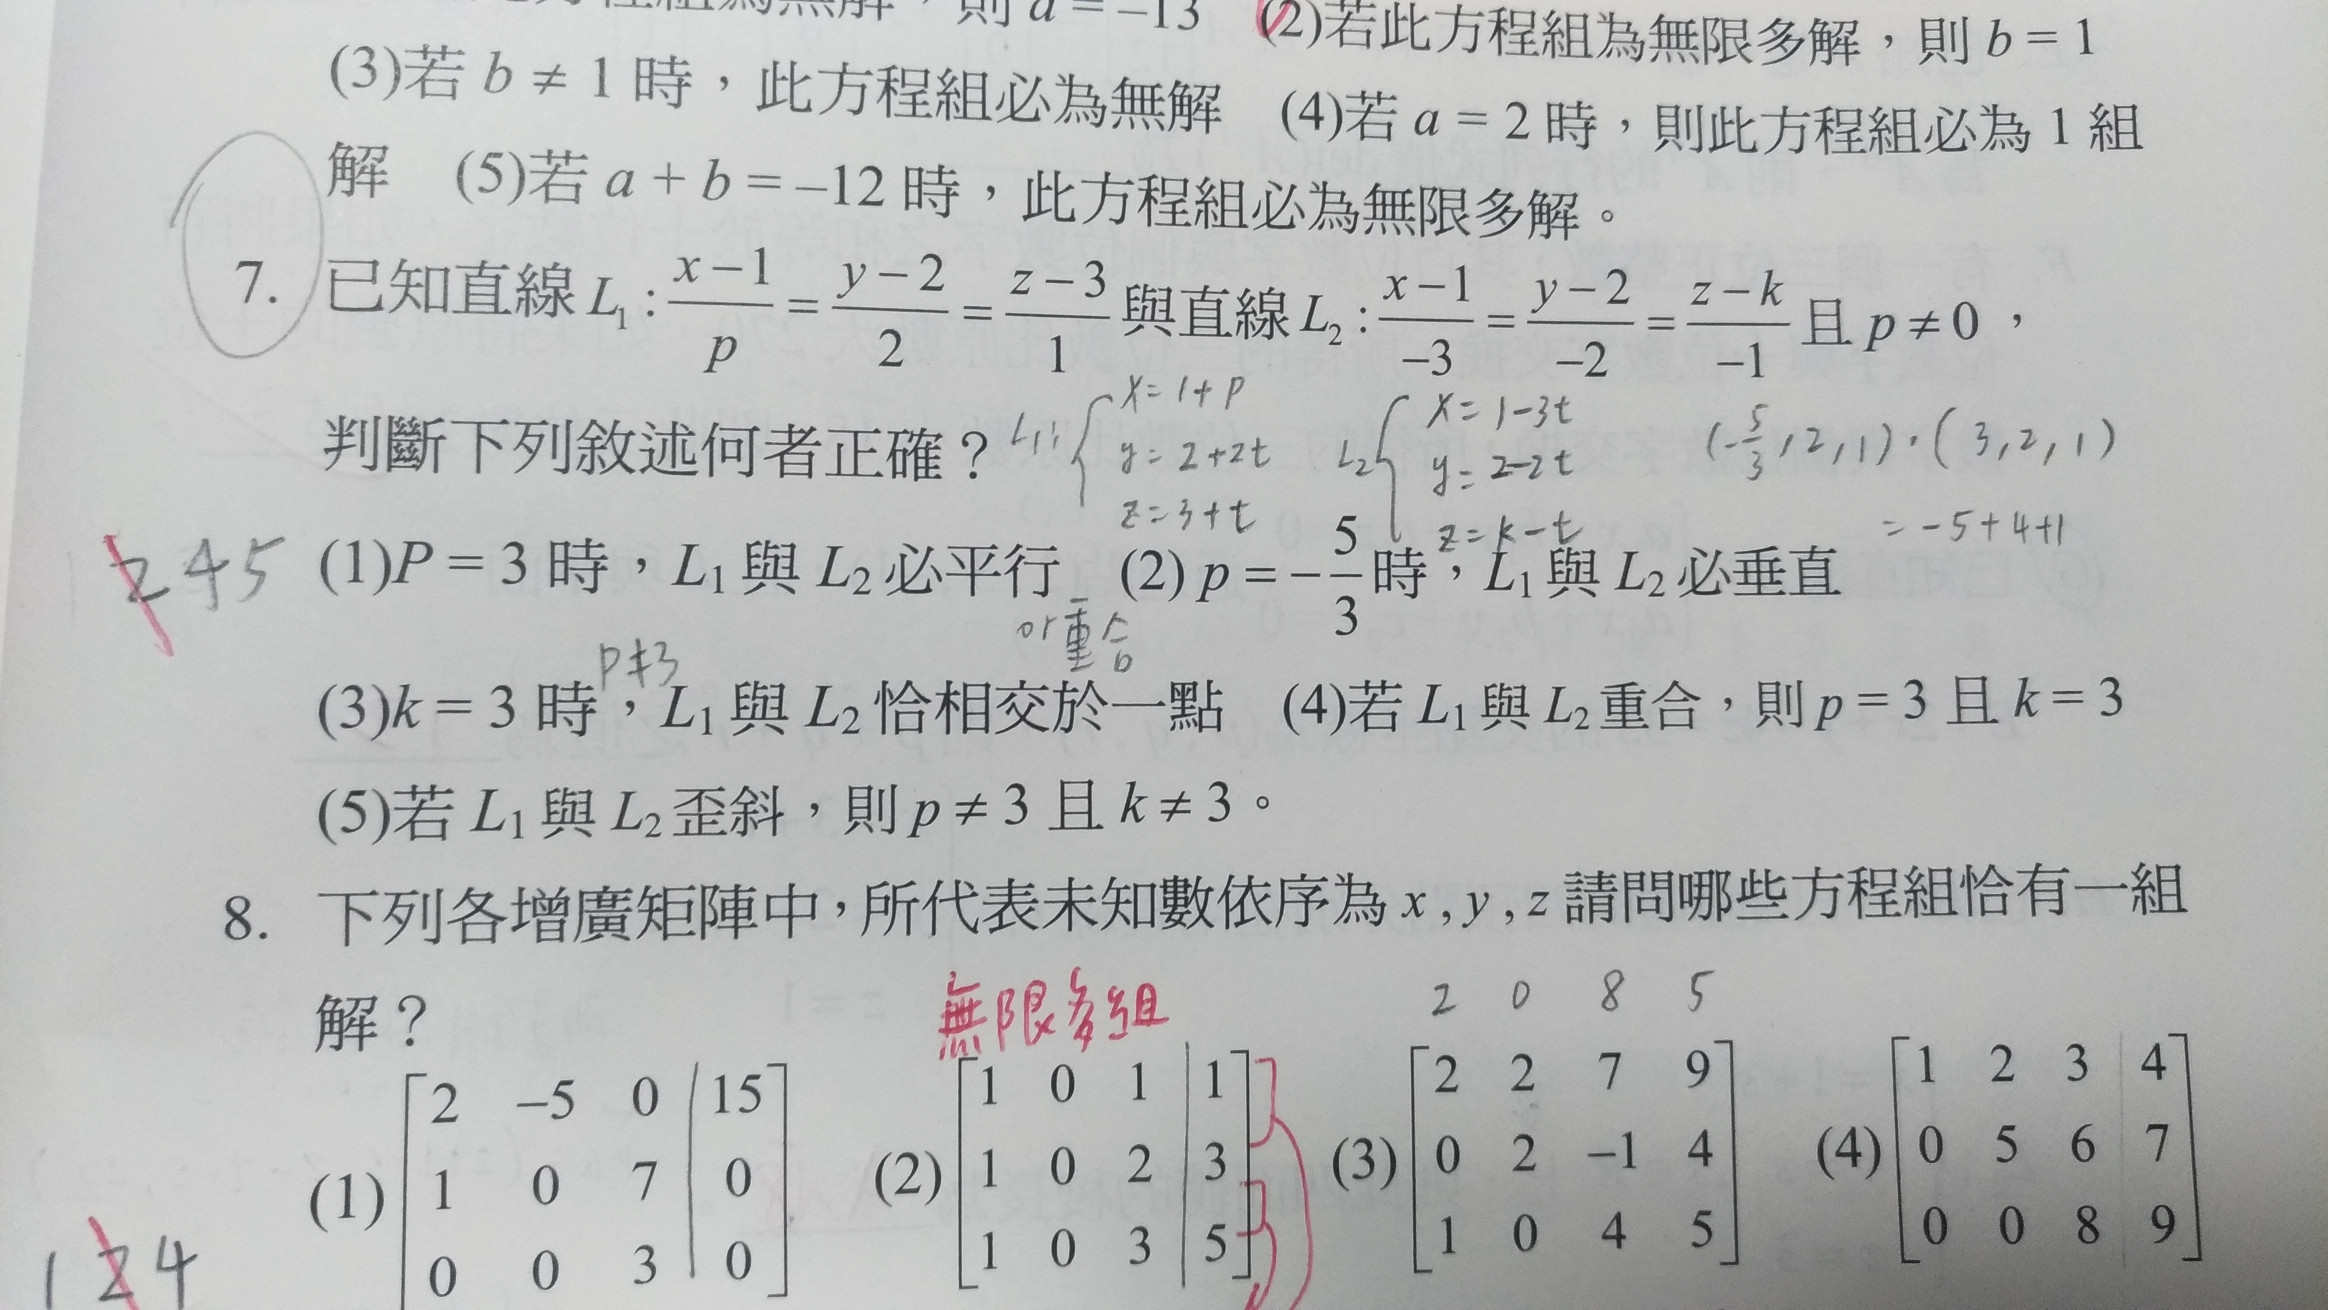 則 a = –13 (2)若此方程組為無限多解，則 b = 1
(3)若 b ≠ 1 時，此方程組必為無解 (4)若 a = 2 時，則此方程組必為 1 組
解 (5)若 a + b = –12 時，此方程組必為無限多解。
7. 已知直線 L₁ : (x – 1)/p = (y – 2)/2 = (z – 3)/1 與直線 L₂ : (x – 1)/–3 = (y – 2)/–2 = (z – k)/–1 且 p ≠ 0，
判斷下列敘述何者正確？
L₁: { x = 1 + p
y = 2 + 2t
z = 3 + t
L₂ { x = 1 – 3t
y = 2 – 2t
z = k – t
(–5/3, 2, 1)·(3, 2, 1)
= –5 + 4 + 1
245
(1)P = 3 時，L₁ 與 L₂ 必平行 (2) p = –5/3 時，L₁ 與 L₂ 必垂直
or 重合
p ≠ 3
(3)k = 3 時，L₁ 與 L₂ 恰相交於一點 (4)若 L₁ 與 L₂ 重合，則 p = 3 且 k = 3
(5)若 L₁ 與 L₂ 歪斜，則 p ≠ 3 且 k ≠ 3。
8. 下列各增廣矩陣中，所代表未知數依序為 x , y , z 請問哪些方程組恰有一組
解？
無限多組
2 0 8 5
(1) [2 –5 0 | 15
1 0 7 | 0
0 0 3 | 0]
(2) [1 0 1 | 1
1 0 2 | 3
1 0 3 | 5]
(3) [2 2 7 9
0 2 –1 4
1 0 4 5]
(4) [1 2 3 4
0 5 6 7
0 0 8 9]
124